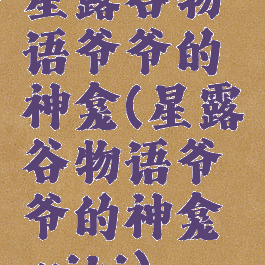 星露谷物
语爷爷的
神龛(星露
谷物语爷
爷的神龛